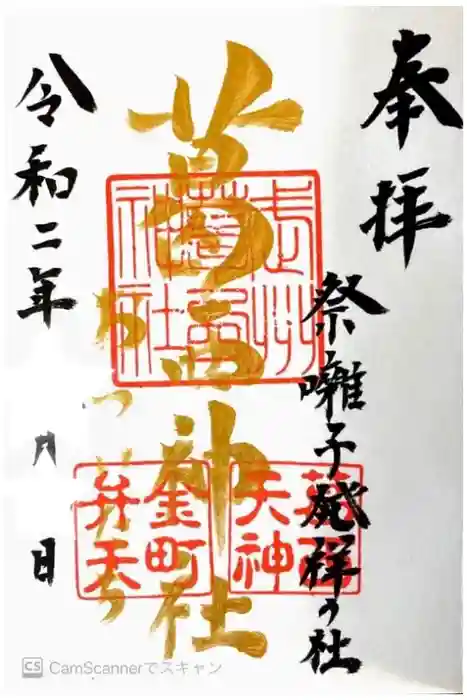 奉拝
祭囃子発祥の社
葛西神社
武州
葛西
神社
葛西
天神
金町
弁天
令和二年 月 日
CS CamScannerでスキャン